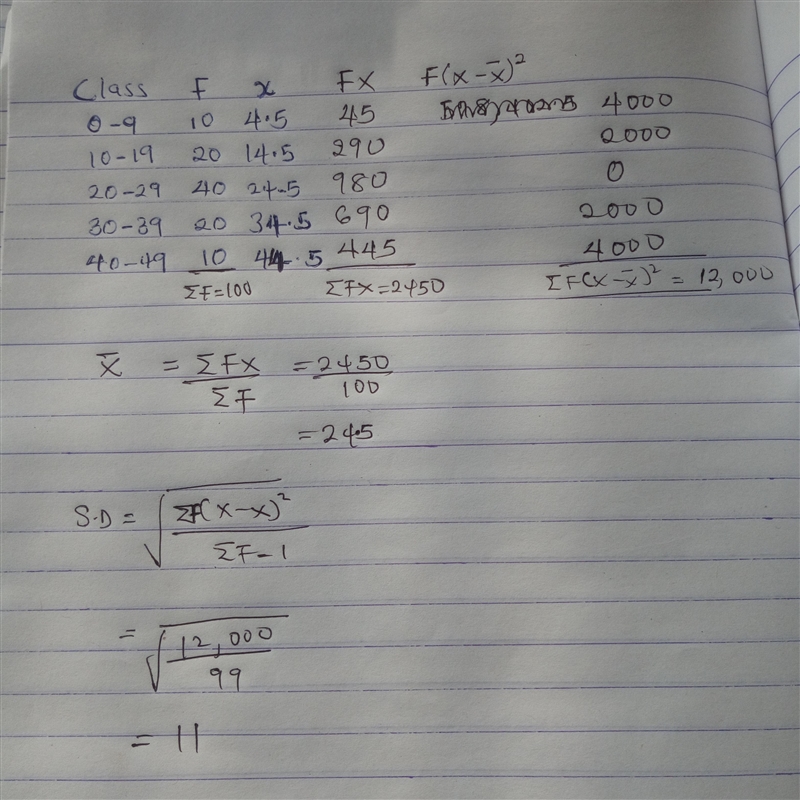 Class F x FX F(x-x̄)²
0-9 10 4.5 45 4000
10-19 20 14.5 290 2000
20-29 40 24.5 980 0
30-39 20 34.5 690 2000
40-49 10 44.5 445 4000
ΣF=100 ΣFX=2450 ΣF(X-x̄)² = 12,000
X̄ = ΣFX = 2450
ΣF 100
= 24.5
S.D = √ ΣF(X-X)²
ΣF-1
= √ 12,000
99
= 11